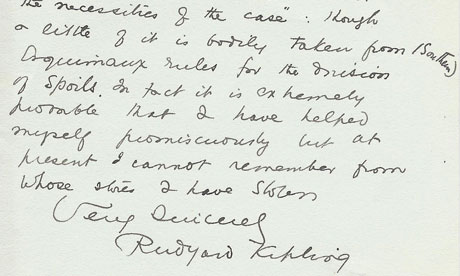 the necessities of the case": though
a little of it is bodily taken from (Southern)
Esquimaux rules for the division
of spoils. In fact it is extremely
probable that I have helped
myself promiscuously but at
present I cannot remember from
whose stories I have stolen
Very sincerely
Rudyard Kipling